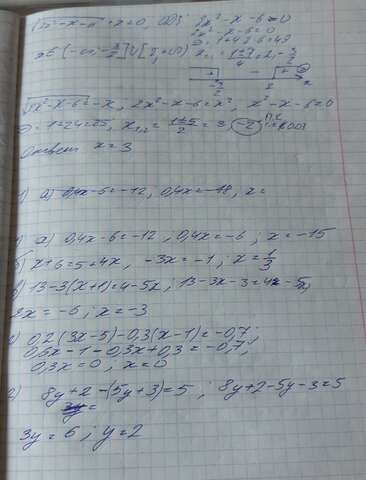 √2x²-x-6 - x = 0, ОДЗ: 2x²-x-6≥0
2x²-x-6=0
D=1+48=49
x∈(-∞;-3/2]∪[2;+∞) x₁,₂=(1±7)/4=2;-3/2
+ - +
-3/2 2 x
√2x²-x-6=x; 2x²-x-6=x²; x²-x-6=0
D=1+24=25, x₁,₂=(1±5)/2=3; -2
Ответ x=3
1) а) 0,4x-6=-12, 0,4x=-18, x=
1) а) 0,4x-6=-12; 0,4x=-6; x=-15
x+6=5+4x, -3x=-1; x=1/3
13-3(x+1)=4-5x; 13-3x-3=4-5x;
2x=-6; x=-3
0,2(3x-5)-0,3(x-1)=-0,7;
0,6x-1-0,3x+0,3=-0,7;
0,3x=0, x=0
2) 8y+2-(5y+3)=5; 8y+2-5y-3=5
3y=
3y=6; y=2